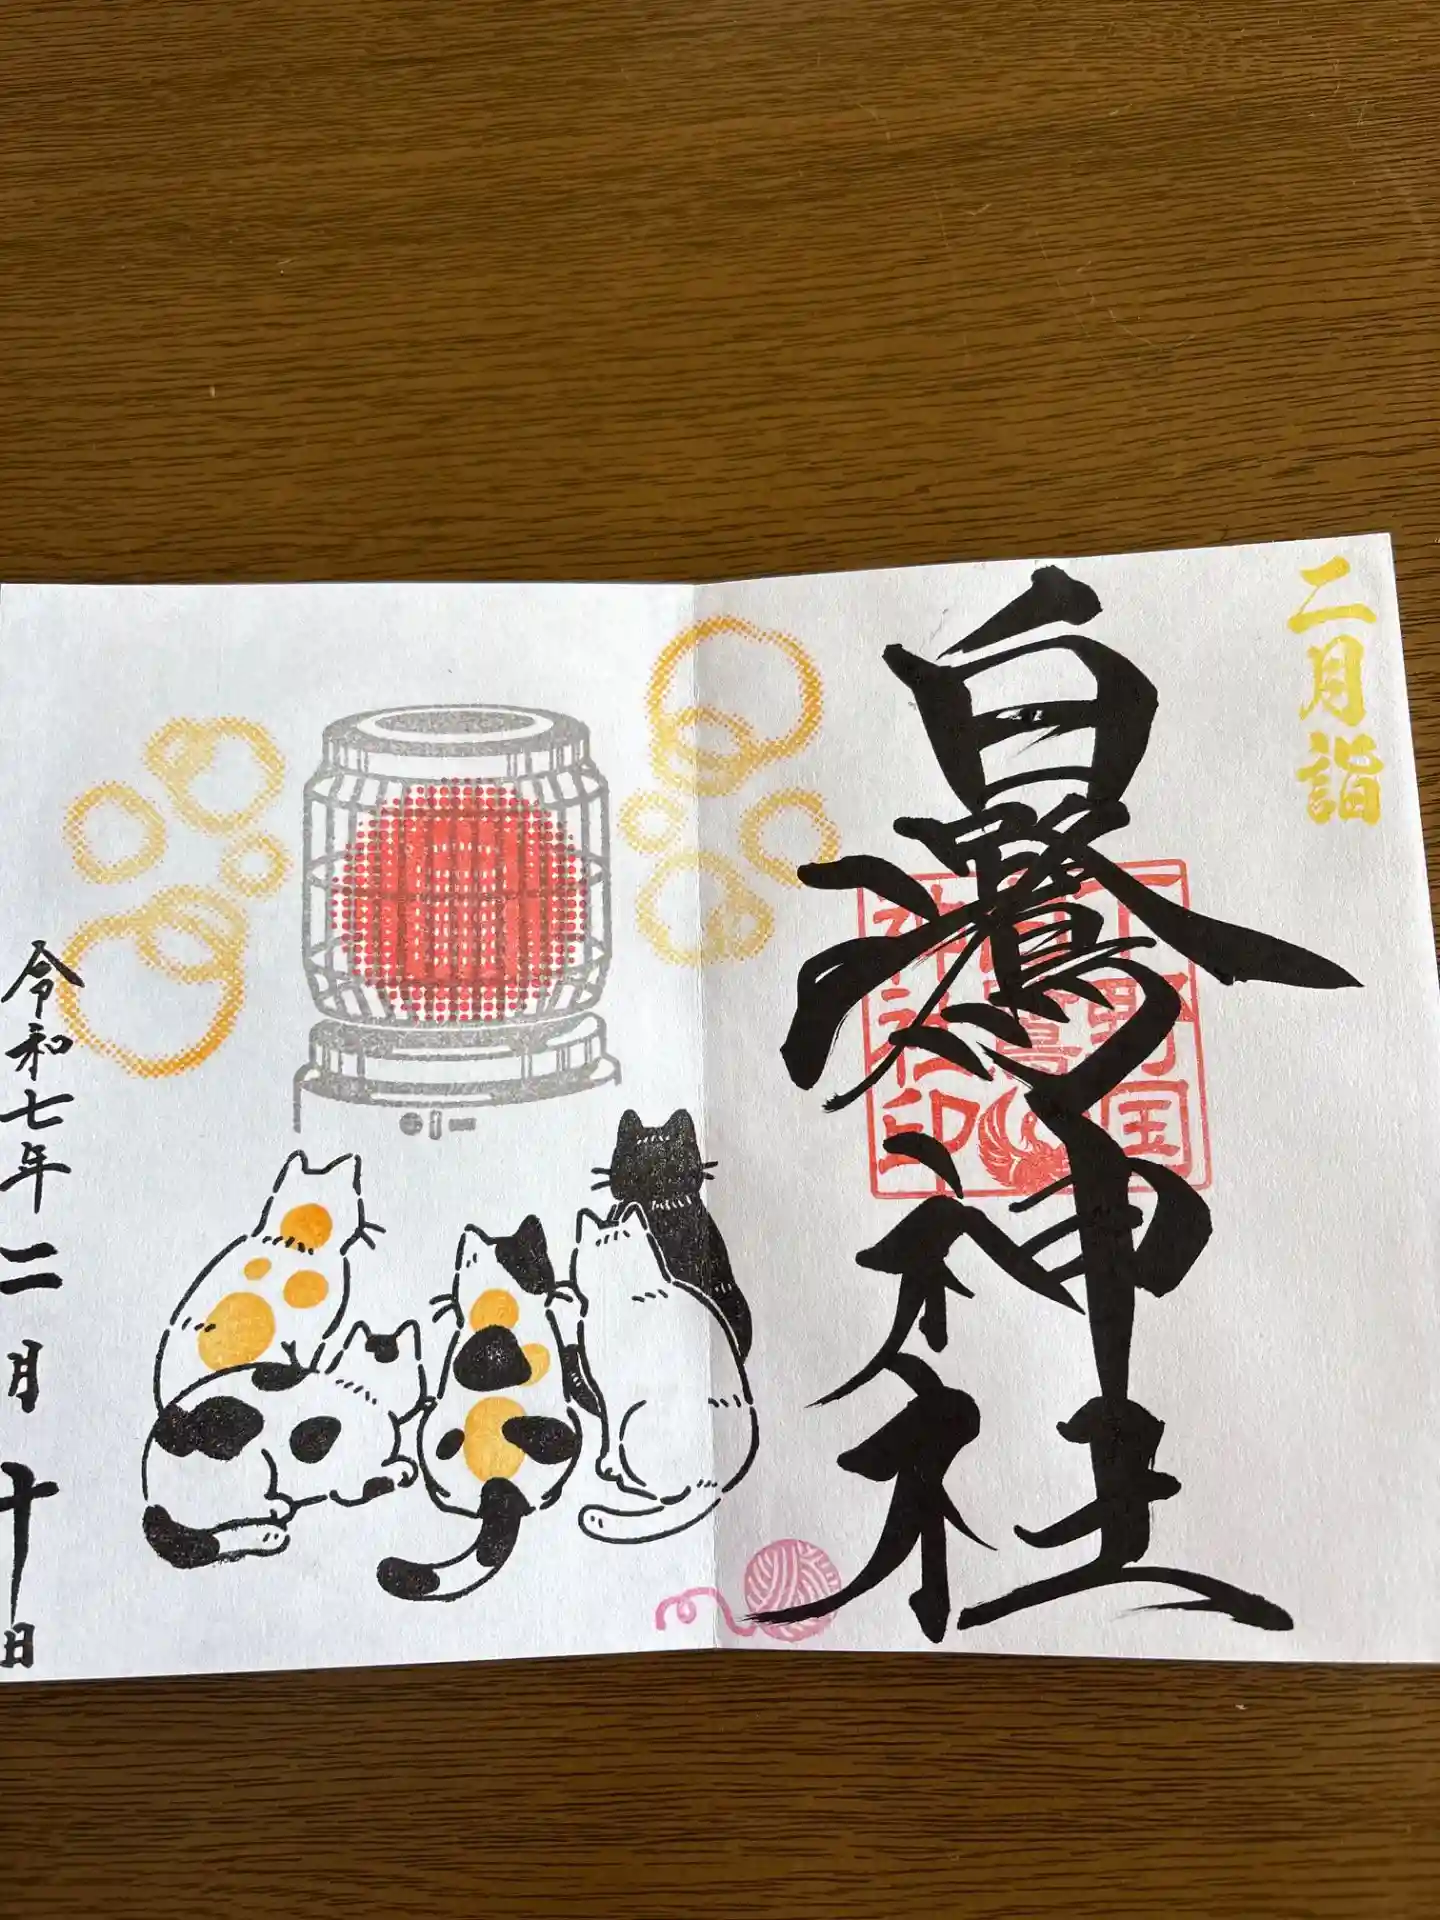 二月詣
白鷺神社
下野国
白鷺
神社印
令和七年二月十日